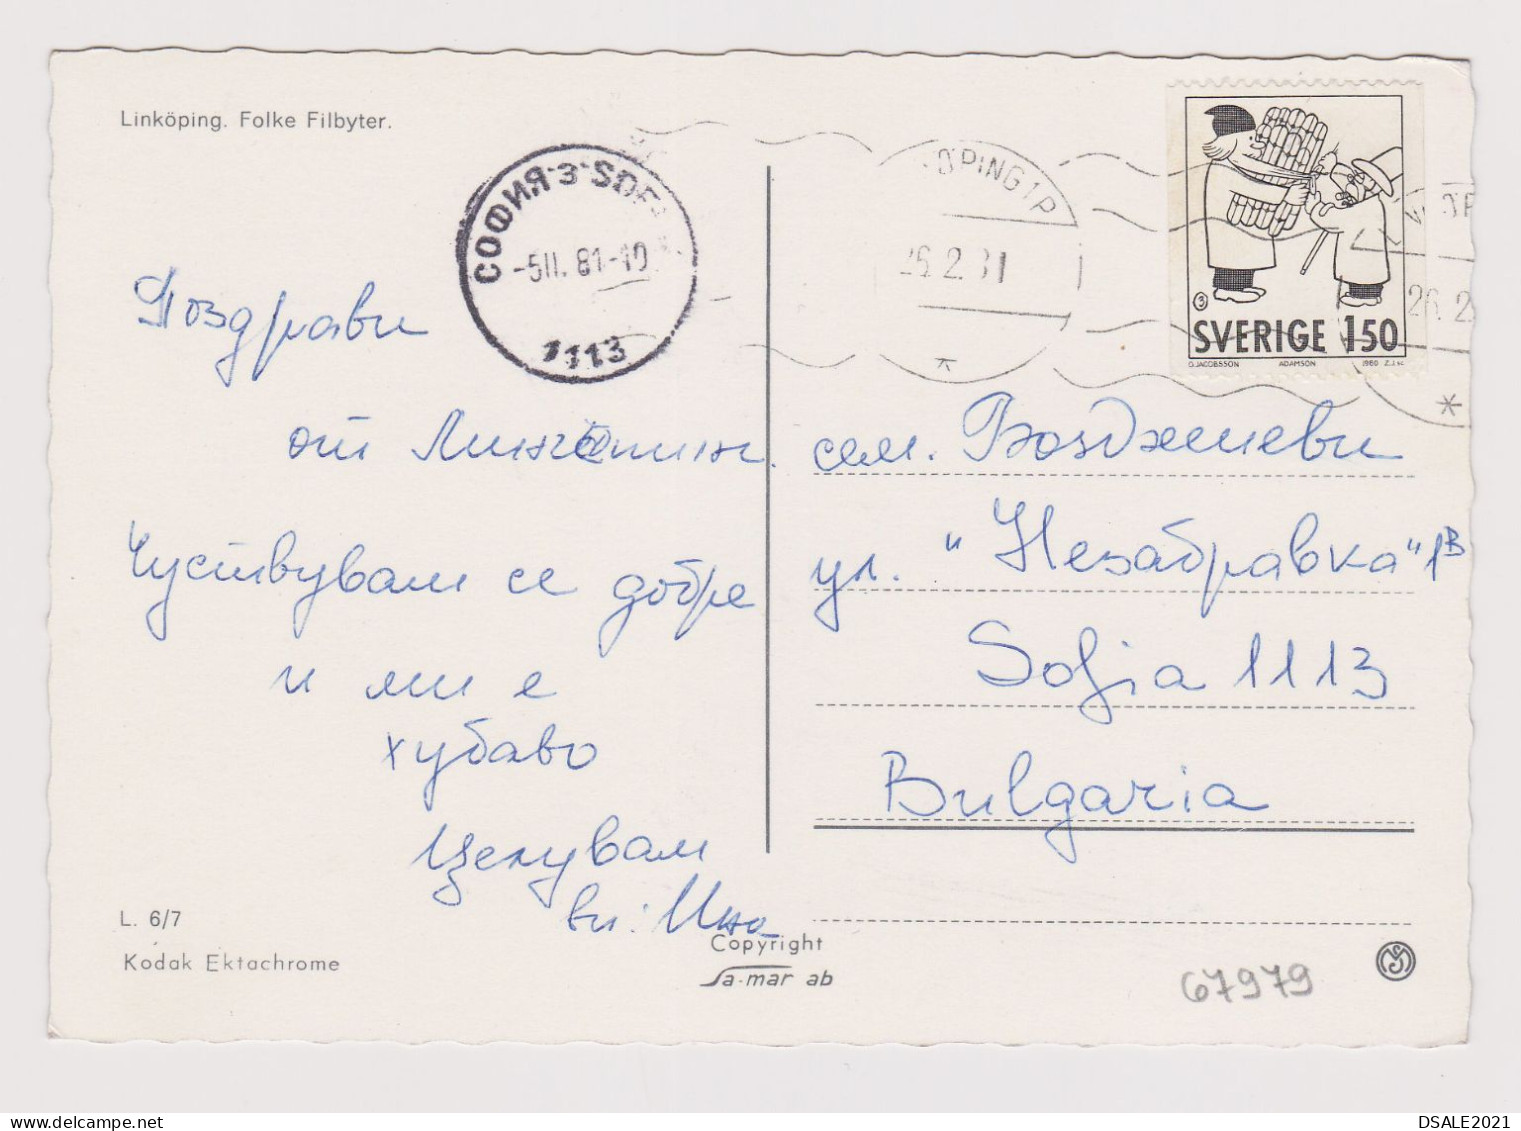 Linköping. Folke Filbyter.
СОФИЯ-3-SOF
-5II. 81-10
1113
ÖPING 1 P
26.2.81
26.2
SVERIGE 150
O.JACOBSSON ADAMSON 1980 Z.J sc
Поздрави
от
Чуствувам се добре
и ми е
хубаво
Целувам
ви: Ина
сем. Бояджиеви
ул. "Незабравка" 1В
Sofia 1113
Bulgaria
L. 6/7
Kodak Ektachrome
Copyright
Sa-mar ab
67979
DSALE2021